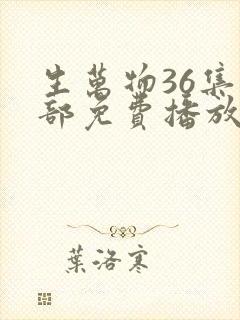 生萬物36集
部免費播放
葉洛寒